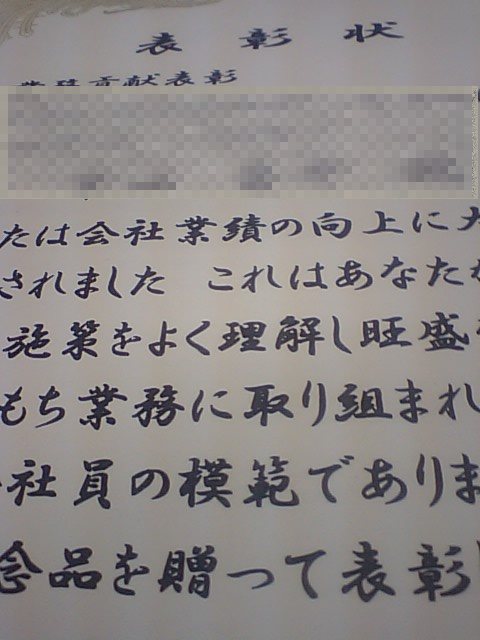 表彰状
業務貢献表彰
たは会社業績の向上に大
されました これはあなたが
施策をよく理解し旺盛
もち業務に取り組まれ
社員の模範でありま
念品を贈って表彰